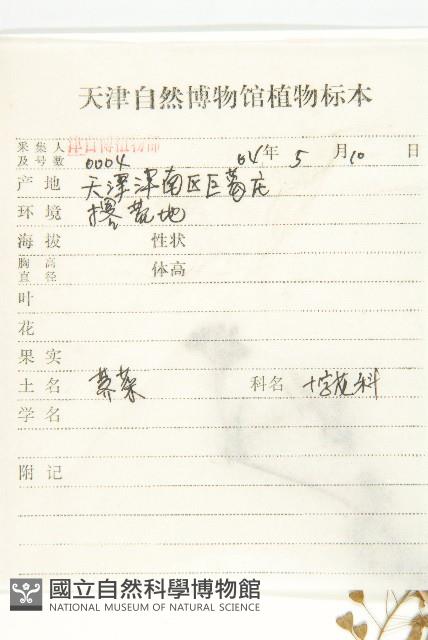 天津自然博物馆植物标本
采集人及号数 津自博植物部 0004 04年5月10日
产地 天津津南区巨葛庄
环境 撂荒地
海拔 性状
胸高直径 体高
叶
花
果实
土名 荠菜 科名 十字花科
学名
附记
國立自然科學博物館
NATIONAL MUSEUM OF NATURAL SCIENCE